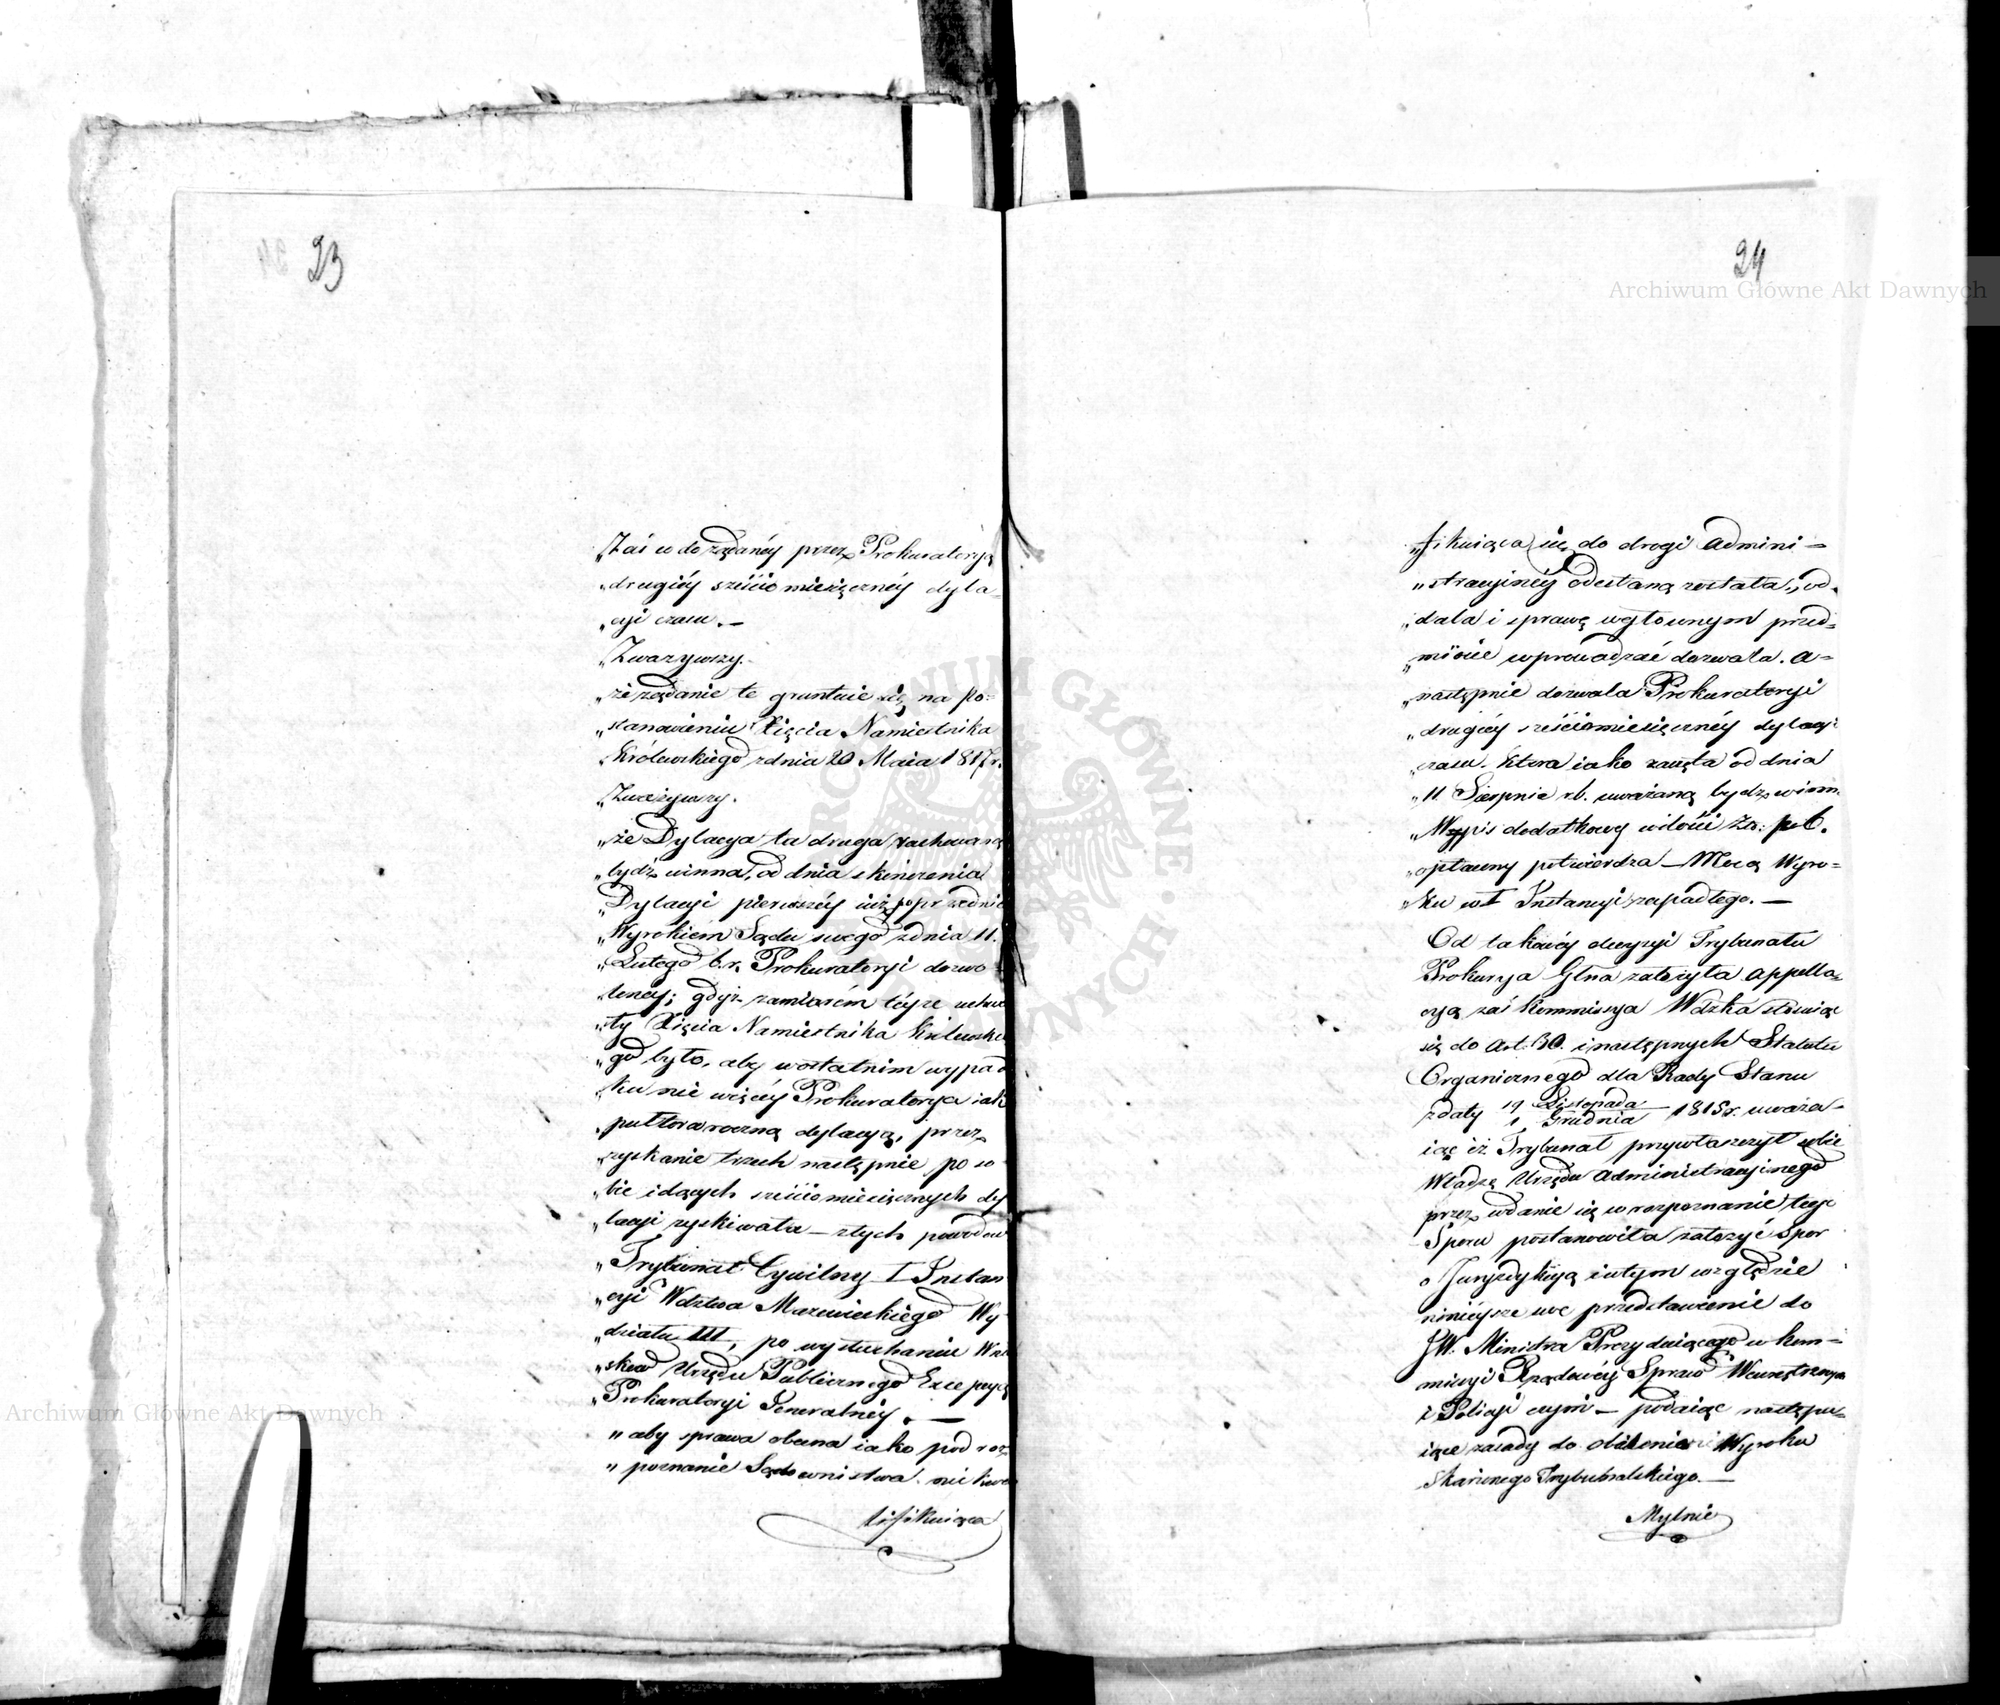 23
„Zaś co do żądanéy przez Prokuratoryą
„drugiéy sześciomiesięcznéy dyla-
„cyi czasu. —
„Zważywszy.
„że żądanie te gruntuie się na po-
„stanowieniu Xięcia Namiestnika
„Królewskiego z dnia 20 Maia 1817 r.
„Zważywszy.
„że Dylacya ta druga rachowaną
„bydź winna, od dnia skończenia
„Dylacyi pierwszéy iuż poprzednio
„Wyrokiem Sądu swego z dnia 11.
„Lutego b. r. Prokuratoryi dozwo-
„lonéy; gdyż zamiarem téyże uchwa
„ły Xięcia Namiestnika Królewskie
„go było, aby w ostatnim wypad
„ku nie więcéy Prokuratorya iak
„pułtora roczną dylacyą, przez
„zyskanie trzech następnie po so
„bie idących sześciomiesięcznych dy
„lacyi zyskiwała — z tych powodow
„Trybunał Cywilny I Instan
„cyi Wdztwa Mazowieckiego Wy-
„działu III, po wysłuchaniu Wnio
„sków Urzędu Publicznego Excepcyą
„Prokuratoryi Generalnéy. —
„aby sprawa obecna iako pod roz
„poznanie Sądownistwa nie kwa
lifikuiąca
24
Archiwum Główne Akt Dawnych
„fikuiąca się do drogi admini-
„stracyinéy odesłaną została, od-
„dala i sprawę w głownym przed-
„miocie wprowadzać dozwala. a-
„następnie dozwala Prokuratoryi
„drugiéy sześciomiesięcznéy dylacyi
„czasu. ktora iako zaczęta od dnia
„11 Sierpnia r. b. uważaną bydź winna
„Wypis dodatkowy w ilości Zł: p. 6.
„opłacony potwierdza — Mocą Wyro-
„ku w I Instancyi zapadłego. —
Od takowéy decyzyi Trybunału
Prokurya Glna założyła appella-
cyą zaś Kommissya Wdzka stosuiąc
się do Art: 30. i następnych Statutu
Organicznego dla Rady Stanu
z daty 19 Listopada / 1 Grudnia 1815 r. uważa-
iąc iż Trybunał przywłaszczył sobie
Władzę Urzędu administracyinego
przez wdanie się w rozpoznanie tego
Sporu postanowiła założyć Spor
o Juryzdykcyą i w tym względzie
ninieysze swe przedstawienie do
JW. Ministra Prezyduiącego w Kom-
missyi Rządowéy Spraw Wewnętrznych
i Policyi czyni — podaiąc nastepu-
iące zasady do obalenia Wyroku
Skarżonego Trybunalskiego. —
Mylnie
Archiwum Główne Akt Dawnych